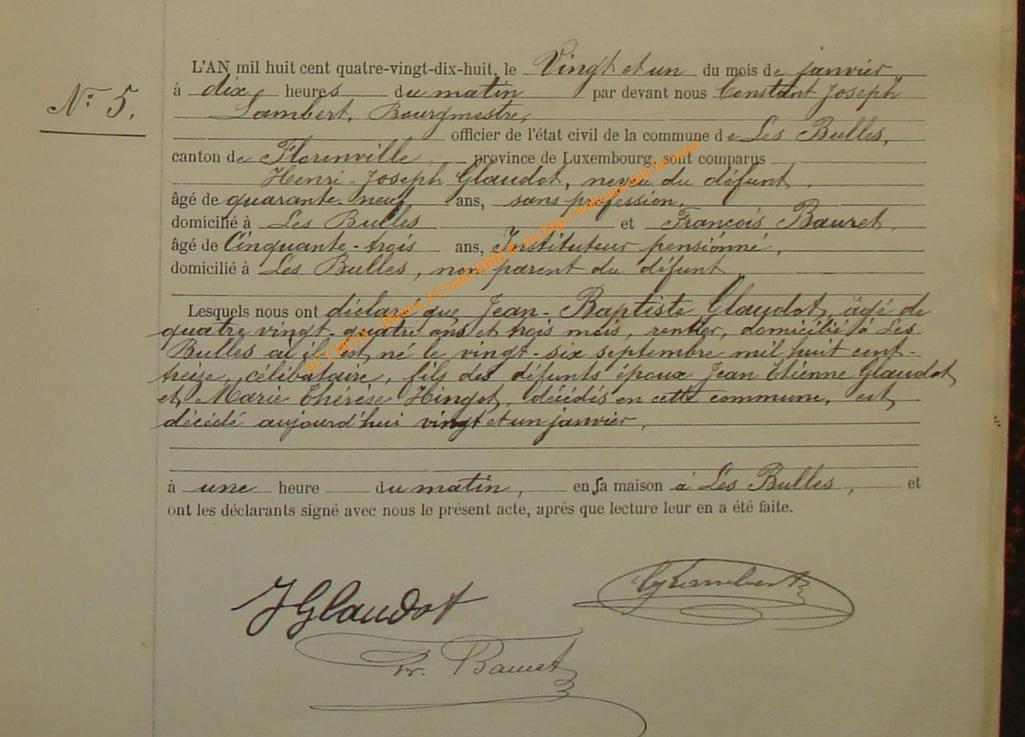 N° 5.
L'AN mil huit cent quatre-vingt-dix-huit, le Vingt et un du mois de janvier
à dix heures du matin par devant nous Constant Joseph
Lambert, Bourgmestre,
officier de l'état civil de la commune de Les Bulles,
canton de Florenville, province de Luxembourg, sont comparus
Henri-Joseph Glaudot, neveu du défunt,
âgé de quarante-neuf ans, sans profession,
domicilié à Les Bulles et François Bauret,
âgé de Cinquante-trois ans, Instituteur pensionné,
domicilié à Les Bulles, non parent du défunt
Lesquels nous ont déclaré que Jean-Baptiste Glaudot, âgé de
quatre vingt-quatre ans et trois mois, rentier, domicilié à Les
Bulles où il est né le vingt-six septembre mil huit cent-
treize, célibataire, fils des défunts époux Jean Etienne Glaudot
et Marie Thérèse Hingot, décédés en cette commune, est
décédé aujourd'hui vingt et un janvier,
à une heure du matin, en sa maison à Les Bulles, et
ont les déclarants signé avec nous le présent acte, après que lecture leur en a été faite.
JGlaudot
Lambert
Fr. Bauret